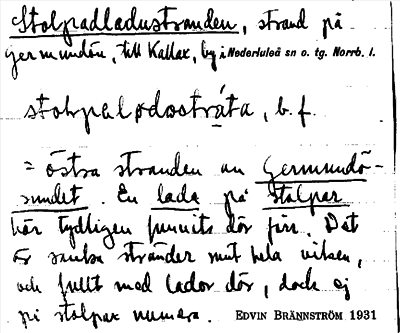 Stolpadladustranden, strand på
Germundön, till Kallax, by i Nederluleå sn o. tg. Norrb. l.
stolpalodostráta, b.f.
= östra stranden av Germundö-
sundet. En lada på stolpar
har tydligen funnits där förr. Det
är sanka stränder mot hela viken,
och fullt med lador där, dock ej
på stolpar numera. EDVIN BRÄNNSTRÖM 1931